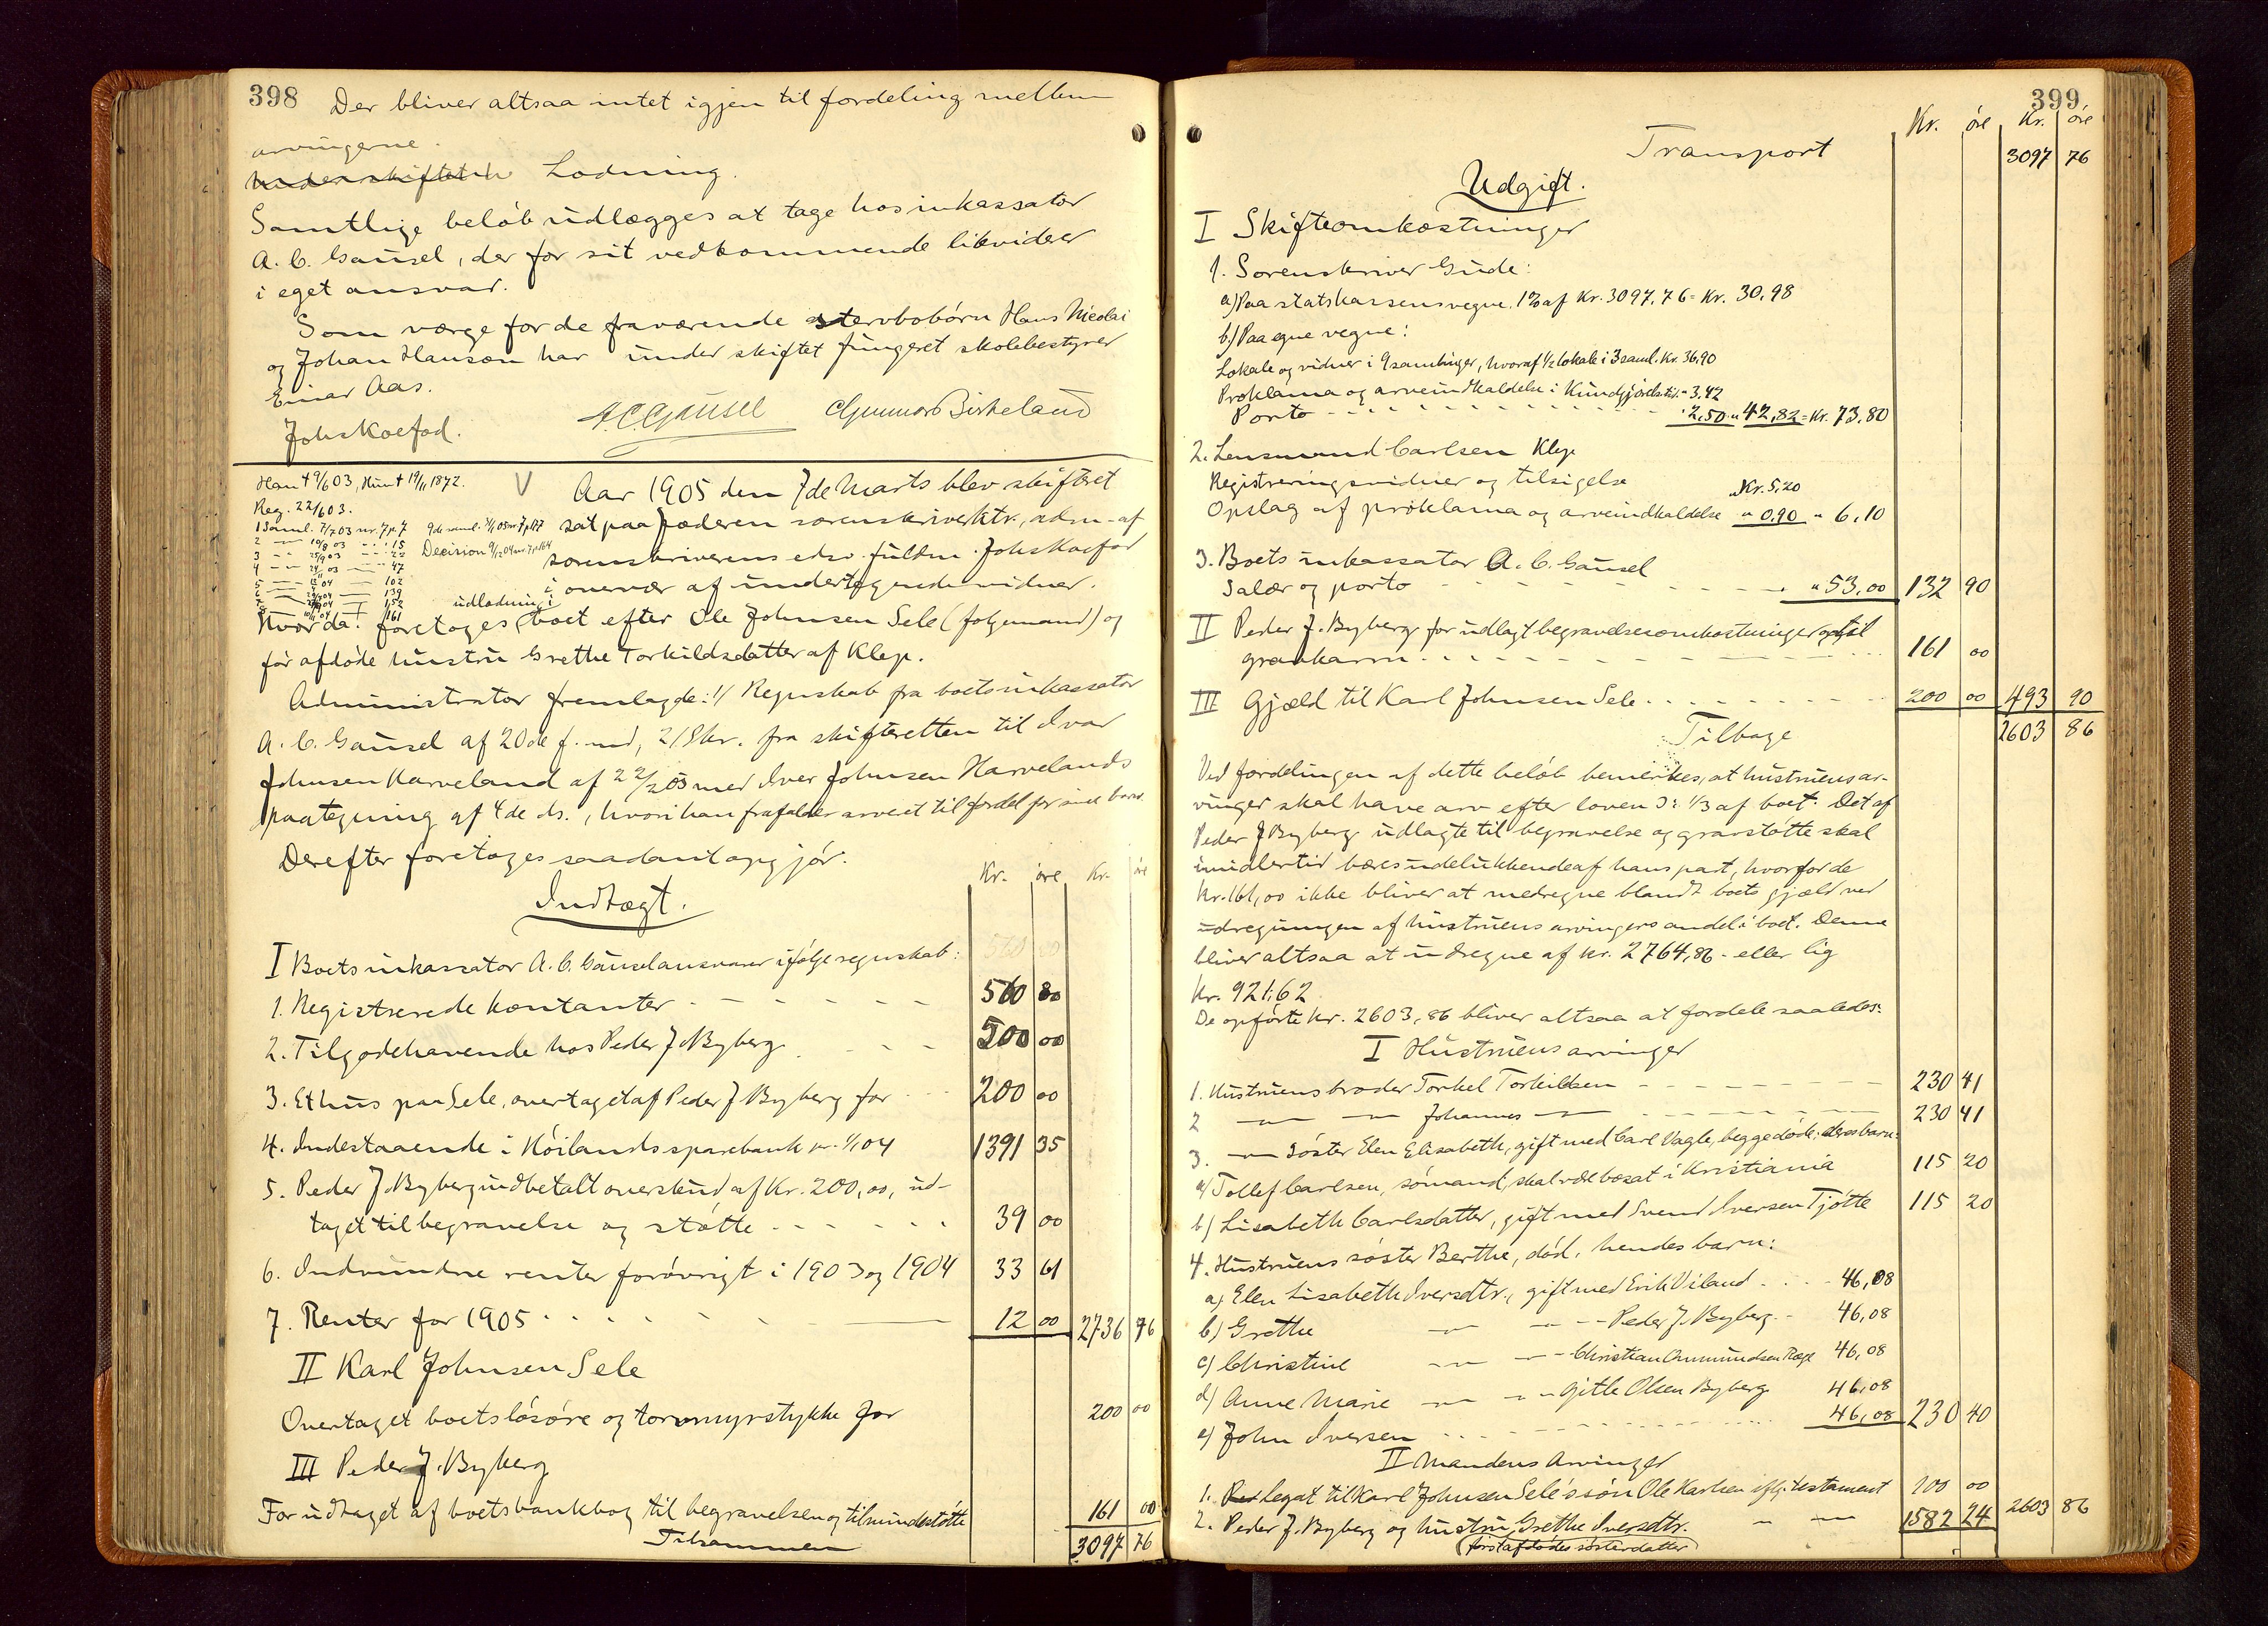 398 Der bliver altsaa intet igjen til fordeling mellem
arvingerne.
Lodning.
Samtlige beløb udlægges at tage hos inkassator
A. C. Gausel, der for sit vedkommende likviderer
i eget ansvar.
Som værge for de fraværende stervbobørn Hans Nicolai
og Johan Hansen har under skiftet fungeret skolebestyrer
Einar Aas.
Joh Skoefod. A.C. Gausel Gunnar Birkeland
Han † 9/6 03, Hun † 19/11 1872.
Reg. 22/6 03.
1 Saml. 7/7 03 nr. 7 p. 7
2 — 10/8 03 — 15
3 — 25/9 03 — 22
4 — 24/11 03 — 47
5 — 04 — 102
6 — 04 — 139
7 — 04 — 152
04 — 161
Decision
V Aar 1905 den 7de Marts blev skifteret
sat paa Jæderen sorenskriverktr., adm. af
sorenskriverens edsv. fuldm. Joh Skoefod
i overvær af undertegnede vidner.
Hvorda: foretoges udlodning i boet efter Ole Johnsen Sele (folgemand) og
før afdøde hustru Grethe Torkildsdatter af Klep.
Administrator fremlagde: 1/ Regnskab fra boets inkassator
A. C. Gausel af 20de f. md, 2/ Skr. fra skifteretten til Ivar
Johnsen Harveland af 22/2 05 med Iver Johnsen Harvelands
paategning af 4de ds., hvori han frafalder arveret til fordel for sine barn.
Derefter foretoges saadant opgjør:
Kr. øre Kr. øre
Indtægt.
I Boets inkassator A. C. Gausel ansvarer ifølge regnskab:
1. Registrerede kontanter - - - - - 560 80
2. Tilgodehavende hos Peder J. Byberg - - - 500 00
3. Et hus paa Sele, overtaget af Peder J Byberg for - - - 200 00
4. Indestaaende i Høilands sparebank pr. 1/1 04 1391 35
5. Peder J. Byberg indbetalt overskud af Kr. 200,00, ud-
taget til begravelse og støtte - - - - - - 39 00
6. Indvundne renter forøvrigt i 1903 og 1904 33 61
7. Renter for 1905 - - - - - 12 00 2736 76
II Karl Johnsen Sele
Overtaget boets løsøre og torvmyrstykke for 200 00
III Peder J. Byberg
For udtaget af boets bankbog til begravelsen og til mindestøtte 161 00
Tilsammen 3097 76
399
Kr. øre Kr. øre
Transport 3097 76
Udgift.
I Skifteomkostninger
1. Sorenskriver Gude:
a) Paa statskassens vegne 1% af Kr. 3097,76 = Kr. 30,98
b) Paa egne vegne:
Lokale og vidner i 9 samlinger, hvoraf 1/2 lokale i 3 saml. Kr. 36,90
Proklama og arveindkaldelse i Kundgjørelsstid. " 3,42
Porto - - - - - " 2,50 " 42,82 = Kr. 73,80
2. Lensmand Carlsen Klep
Registreringsvidner og tilsigelse Kr. 5,20
Opslag af proklama og arveindkaldelse " 0,90 " 6,10
3. Boets inkassator A. C. Gausel
Salær og porto - - - - - " 53,00 132 90
II Peder J. Byberg for udlagt begravelsesomkostninger og til
gravkarm - - - - - 161 00
III Gjæld til Karl Johnsen Sele - - - - - 200 00 493 90
Tilbage 2603 86
Ved fordelingen af dette beløb bemerkes, at hustruens ar-
vinger skal have arv efter loven ɔ: 1/3 af boet. Det af
Peder J Byberg udlagte til begravelse og gravstøtte skal
imidlertid bæres udelukkende af hans part, hvorfor de
Kr. 161,00 ikke bliver at medregne blandt boets gjæld ved
udregningen af hustruens arvingers andel i boet. Denne
bliver altsaa at udregne af Kr. 2764,86 - eller lig
Kr. 921,62
De opførte Kr. 2603,86 bliver altsaa at fordele saaledes:
I Hustruens arvinger
1. Hustruens broder Torkel Torkildsen - - - - - 230 41
2 — — Johannes — - - - - - 230 41
3. — søster Elen Elisabeth, gift med Carl Vagle, begge døde: deres barn:
a) Tollef Carlsen, sømand, skal være bosat i Kristiania 115 20
b) Lisabeth Carlsdatter, gift med Svend Iversen Tjøtte 115 20
4. Hustruens søster Berthe, død, hendes barn:
a) Elen Lisabeth Iversdtr., gift med Erik Viland - - - 46,08
b) Grethe — — - Peder J. Byberg - 46,08
c) Christine — — - Christian Ommundsen Rege 46,08
d) Anne Marie — — - Gitle Olsen Byberg 46,08
e) John Iversen - - - - - 46,08 230 40
II Mandens Arvinger
1. legat til Karl Johnsen Sele's søn Ole Karlsen ifølg. testament 100 00
2. Peder J. Byberg og hustru Grethe Iversdtr. — — 1582 24 2603 86
(førstafdødes søsterdatter)